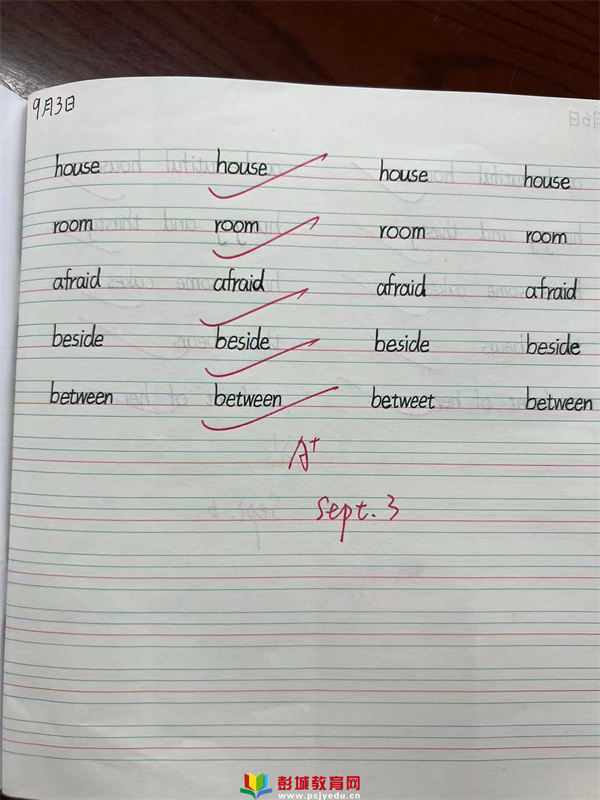 9月3日
house house house house
room room room room
afraid afraid afraid afraid
beside beside beside beside
between between betweet between
A+
Sept. 3
彭城教育网
www.pcjyedu.cn